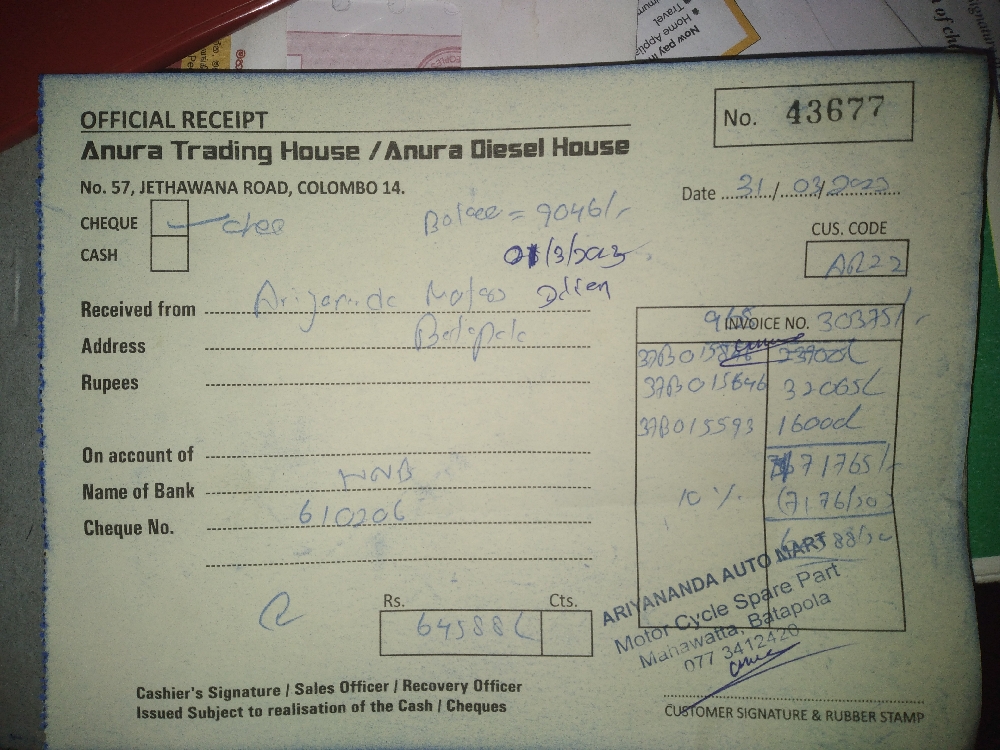 OFFICIAL RECEIPT
No. 43677
Anura Trading House / Anura Diesel House
No. 57, JETHAWANA ROAD, COLOMBO 14.
Date 31/03/2023
CHEQUE
= 90461/-
CUS. CODE
CASH
/3/2023
AR22
Received from
INVOICE NO. 30375/-
Address
Rupees
37B015646 32065/
37B015593 16000/
On account of
71765/-
Name of Bank HNB
10 % (7176/50)
Cheque No. 610206
88/50
ARIYANANDA AUTO MART
Motor Cycle Spare Part
Mahawatta, Batapola
077 3412420
Rs. Cts.
64588/
Cashier's Signature / Sales Officer / Recovery Officer
Issued Subject to realisation of the Cash / Cheques
CUSTOMER SIGNATURE & RUBBER STAMP
Now pay
★ Home Appli
★ Travel